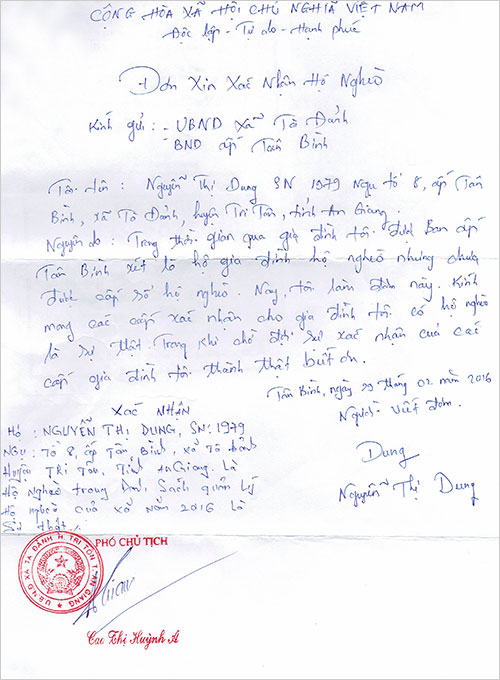 CỘNG HÒA XÃ HỘI CHỦ NGHĨA VIỆT NAM
Độc lập - Tự do - Hạnh phúc
Đơn Xin Xác Nhận Hộ Nghèo
Kính gửi : - UBND Xã Tà Đảnh
BND ấp Tân Bình
Tôi tên : Nguyễn Thị Dung SN 1979 Ngụ tổ 8, ấp Tân
Bình, xã Tà Đảnh, huyện Tri Tôn, tỉnh An Giang.
Nguyên do : Trong thời gian qua gia đình tôi được Ban ấp
Tân Bình xét là hộ gia đình hộ nghèo nhưng chưa
được cấp sổ hộ nghèo. Nay, tôi làm đơn này. Kính
mong các cấp xác nhận cho gia đình tôi có hộ nghèo
là sự thật. Trong khi chờ đợi sự xác nhận của các
cấp gia đình tôi thành thật biết ơn.
Tân Bình, ngày 29 tháng 02 năm 2016
Người viết đơn.
Dung
Nguyễn Thị Dung
XÁC NHẬN
Hộ : NGUYỄN THỊ DUNG, SN: 1979
NGỤ : Tổ 8, ấp Tân Bình, xã Tà Đảnh
Huyện TRI Tôn, Tỉnh An Giang. Là
Hộ Nghèo trong Danh Sách quản lý
Hộ nghèo của xã năm 2016 là
Sự thật ./.
PHÓ CHỦ TỊCH
U.B.N.D XÃ TÀ ĐẢNH H. TRI TÔN T. AN GIANG
Cao Thị Huỳnh Á